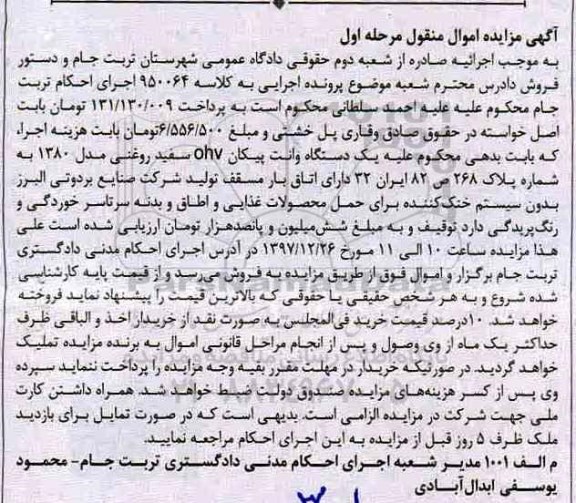 آگهی مزایده اموال منقول مرحله اول
به موجب اجرائیه صادره از شعبه دوم حقوقی دادگاه عمومی شهرستان تربت جام و دستور
فروش دادرس محترم شعبه موضوع پرونده اجرایی به کلاسه ۹۵۰۰۶۴ اجرای احکام تربت
جام محکوم علیه علیه احمد سلطانی محکوم است به پرداخت ۱۳۱/۱۳۰/۰۰۹ تومان بابت
اصل خواسته در حقوق صادق وقاری پل خشتی و مبلغ ۶/۵۵۶/۵۰۰تومان بابت هزینه اجرا،
که بابت بدهی محکوم علیه یک دستگاه وانت پیکان ohv سفید روغنی مدل ۱۳۸۰ به
شماره پلاک ۲۶۸ ص ۸۲ ایران ۳۲ دارای اتاق بار مسقف تولید شرکت صنایع برودتی البرز
بدون سیستم خنک‌کننده برای حمل محصولات غذایی و اطاق و بدنه سرتاسر خوردگی و
رنگ‌پریدگی دارد توقیف و به مبلغ شش‌میلیون و پانصدهزار تومان ارزیابی شده است علی
هذا مزایده ساعت ۱۰ الی ۱۱ مورخ ۱۳۹۷/۱۲/۲۶ در آدرس اجرای احکام مدنی دادگستری
تربت جام برگزار و اموال فوق از طریق مزایده به فروش می‌رسد و از قیمت پایه کارشناسی
شده شروع و به هر شخص حقیقی یا حقوقی که بالاترین قیمت را پیشنهاد نماید فروخته
خواهد شد. ۱۰درصد قیمت خرید فی‌المجلس به صورت نقد از خریدار اخذ و الباقی ظرف
حداکثر یک ماه از وی وصول و پس از انجام مراحل قانونی اموال به برنده مزایده تملیک
خواهد گردید. در صورتیکه خریدار در مهلت مقرر بقیه وجه مزایده را پرداخت ننماید سپرده
وی پس از کسر هزینه‌های مزایده صندوق دولت ضبط خواهد شد. همراه داشتن کارت
ملی جهت شرکت در مزایده الزامی است. بدیهی است که در صورت تمایل برای بازدید
ملک ظرف ۵ روز قبل از مزایده به این اجرای احکام مراجعه نمایید.
م الف ۱۰۰۱ مدیر شعبه اجرای احکام مدنی دادگستری تربت جام- محمود
یوسفی ابدال‌آبادی